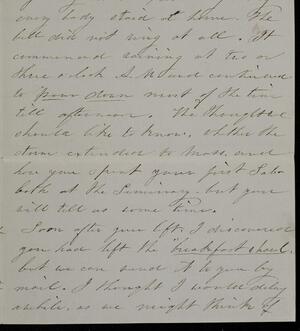 every body staid at home. The
bell did not ring at all. It
commenced raining at two or
three o'clock A.M. and continued
to pour down most of the time
till afternoon. We thought we
should like to know, whether the
storm extended to Mass. and
how you spent your first Sab-
bath at the Seminary. but you
will tell us some time.
Soon after you left, I discovered
you had left the "breakfast shawl,
but we can send it to you by
mail. I thought I would delay
awhile, as we might think of